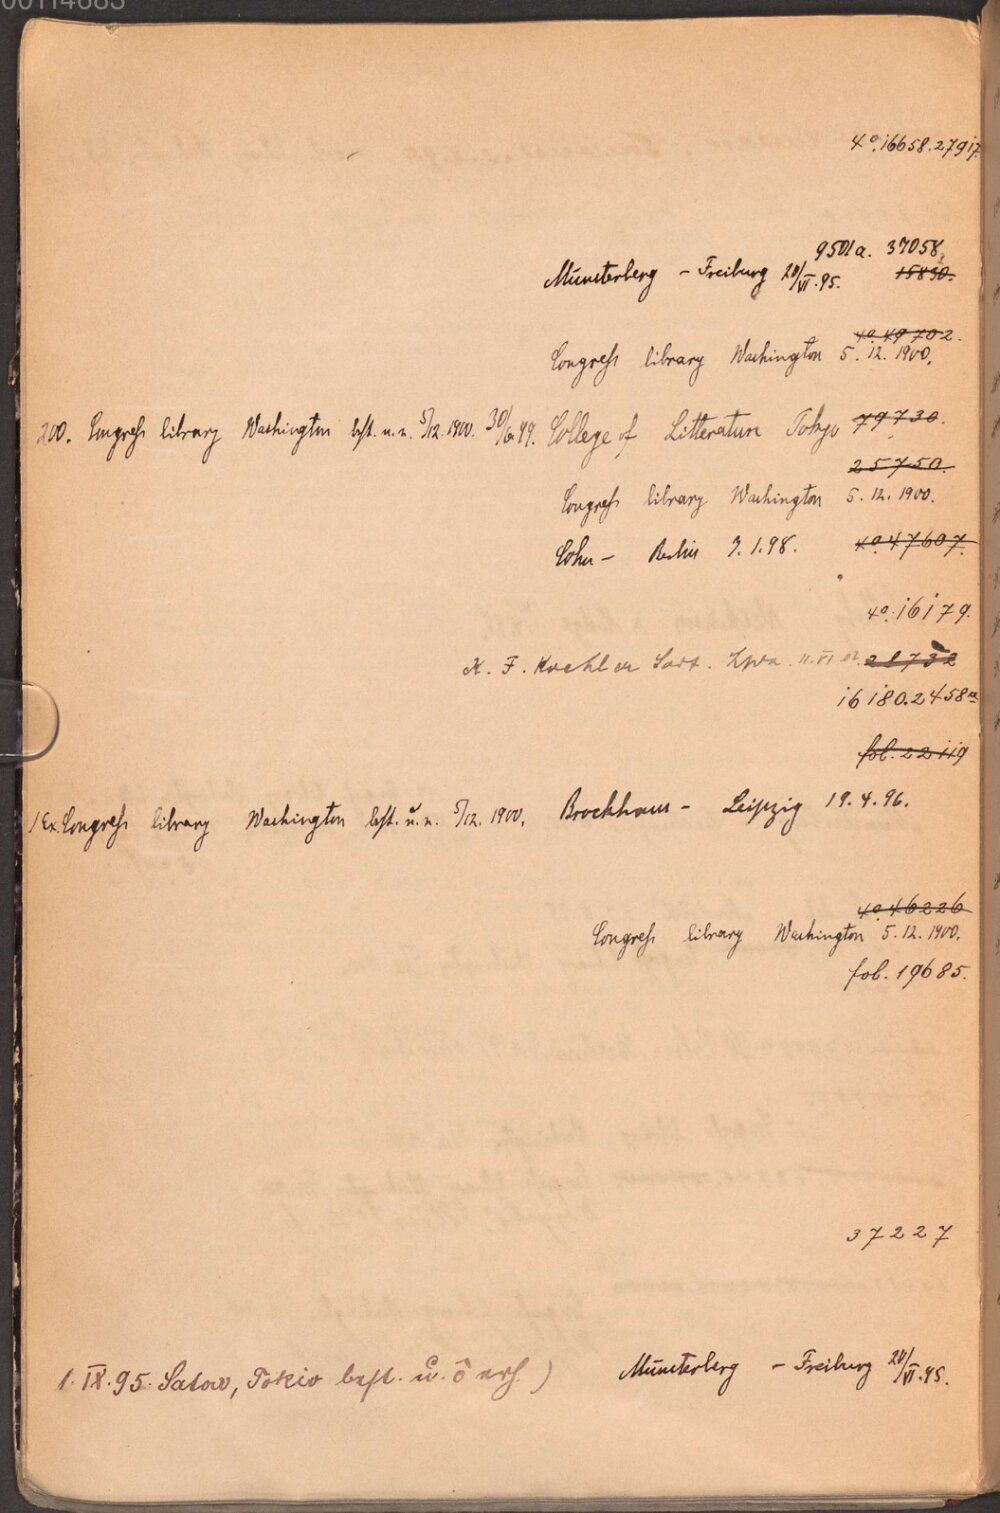 00114683
4°. 16658. 27917.
9501a. 37058,
Münsterberg - Freiburg 20/VI. 95. 15830.
4°. 49702.
Congreß library Washington 5. 12. 1900.
200. Congreß library Washington best. u. n. 5/12. 1900. 30/6. 99. College of Litterature Tokyo 79730.
25750.
Congreß library Washington 5. 12. 1900.
Cohn - Berlin 7. 1. 98. 4°. 47607.
4°. 16179.
K. F. Koehler Sort. Lpzg. 11. VI 02. 28732
16180. 2458
fol. 22119
1 Ex. Congreß library Washington best. u. n. 5/12. 1900. Brockhaus - Leipzig 19. 4. 96.
4°. 46226
Congreß library Washington 5. 12. 1900.
fol. 19685.
37227
1. IX. 95. Satow, Tokio best. u. )
Münsterberg - Freiburg 20/VI. 95.